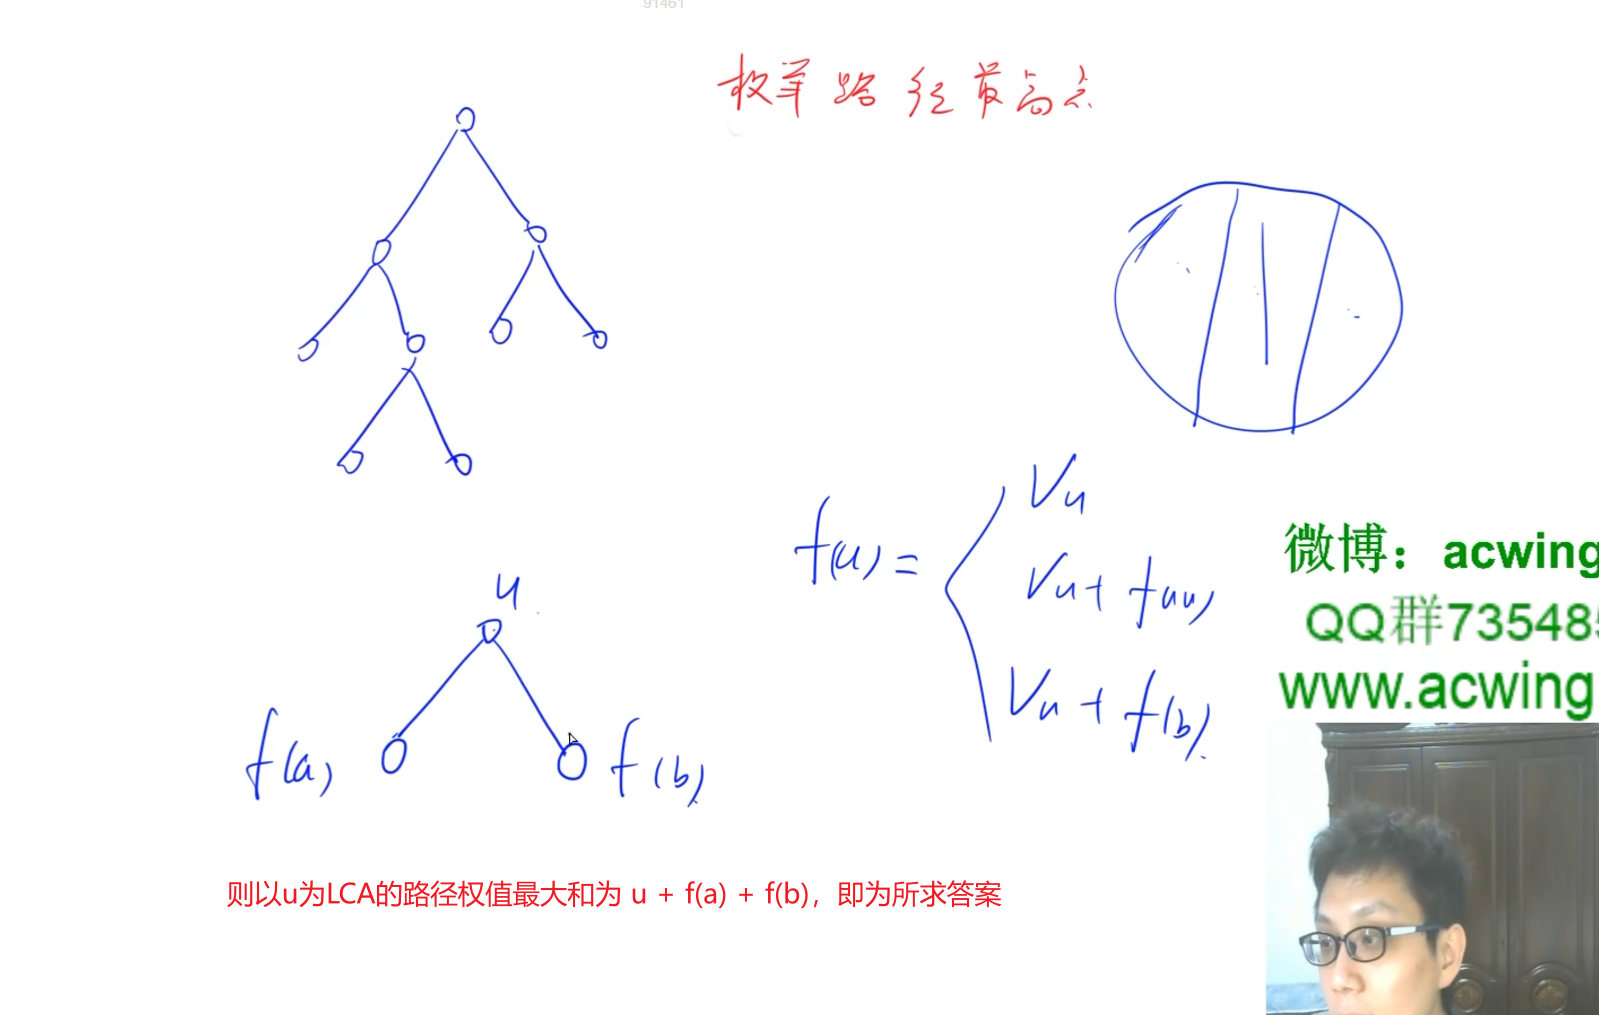 91461
枚举路径最高点
Vu
f(u) =
Vu + f(a)
Vu + f(b).
u
f(a)
f(b)
微博：acwing
QQ群73548
www.acwing
则以u为LCA的路径权值最大和为 u + f(a) + f(b)，即为所求答案